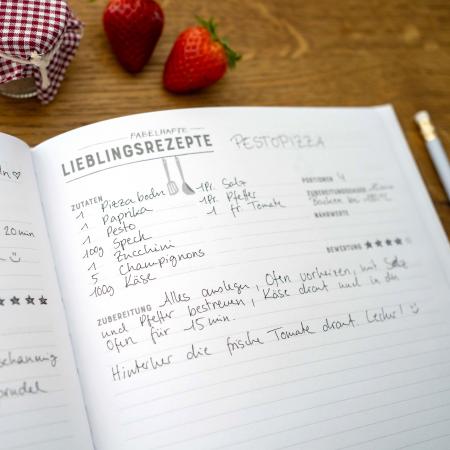 dn ♡
20 min
schannung
prudel
FABELHAFTE
LIEBLINGSREZEPTE PESTOPIZZA
ZUTATEN
1 Pizzabodn
1 Paprika
1 Pesto
100g Speck
1 Zucchini
5 Champignons
100g Käse
1Pr. Salz
1Pr. Pfeffer
1 fr. Tomate
PORTIONEN 4
ZUBEREITUNGSDAUER 15min
Backen bei
NÄHRWERTE
BEWERTUNG ★★★★
ZUBEREITUNG Alles auslegen, Ofen vorheizen, mit Salz
und Pfeffer bestreuen, Käse drauf und in den
Ofen für 15 min.
Hinterher die frische Tomate drauf. Lecker! ☺